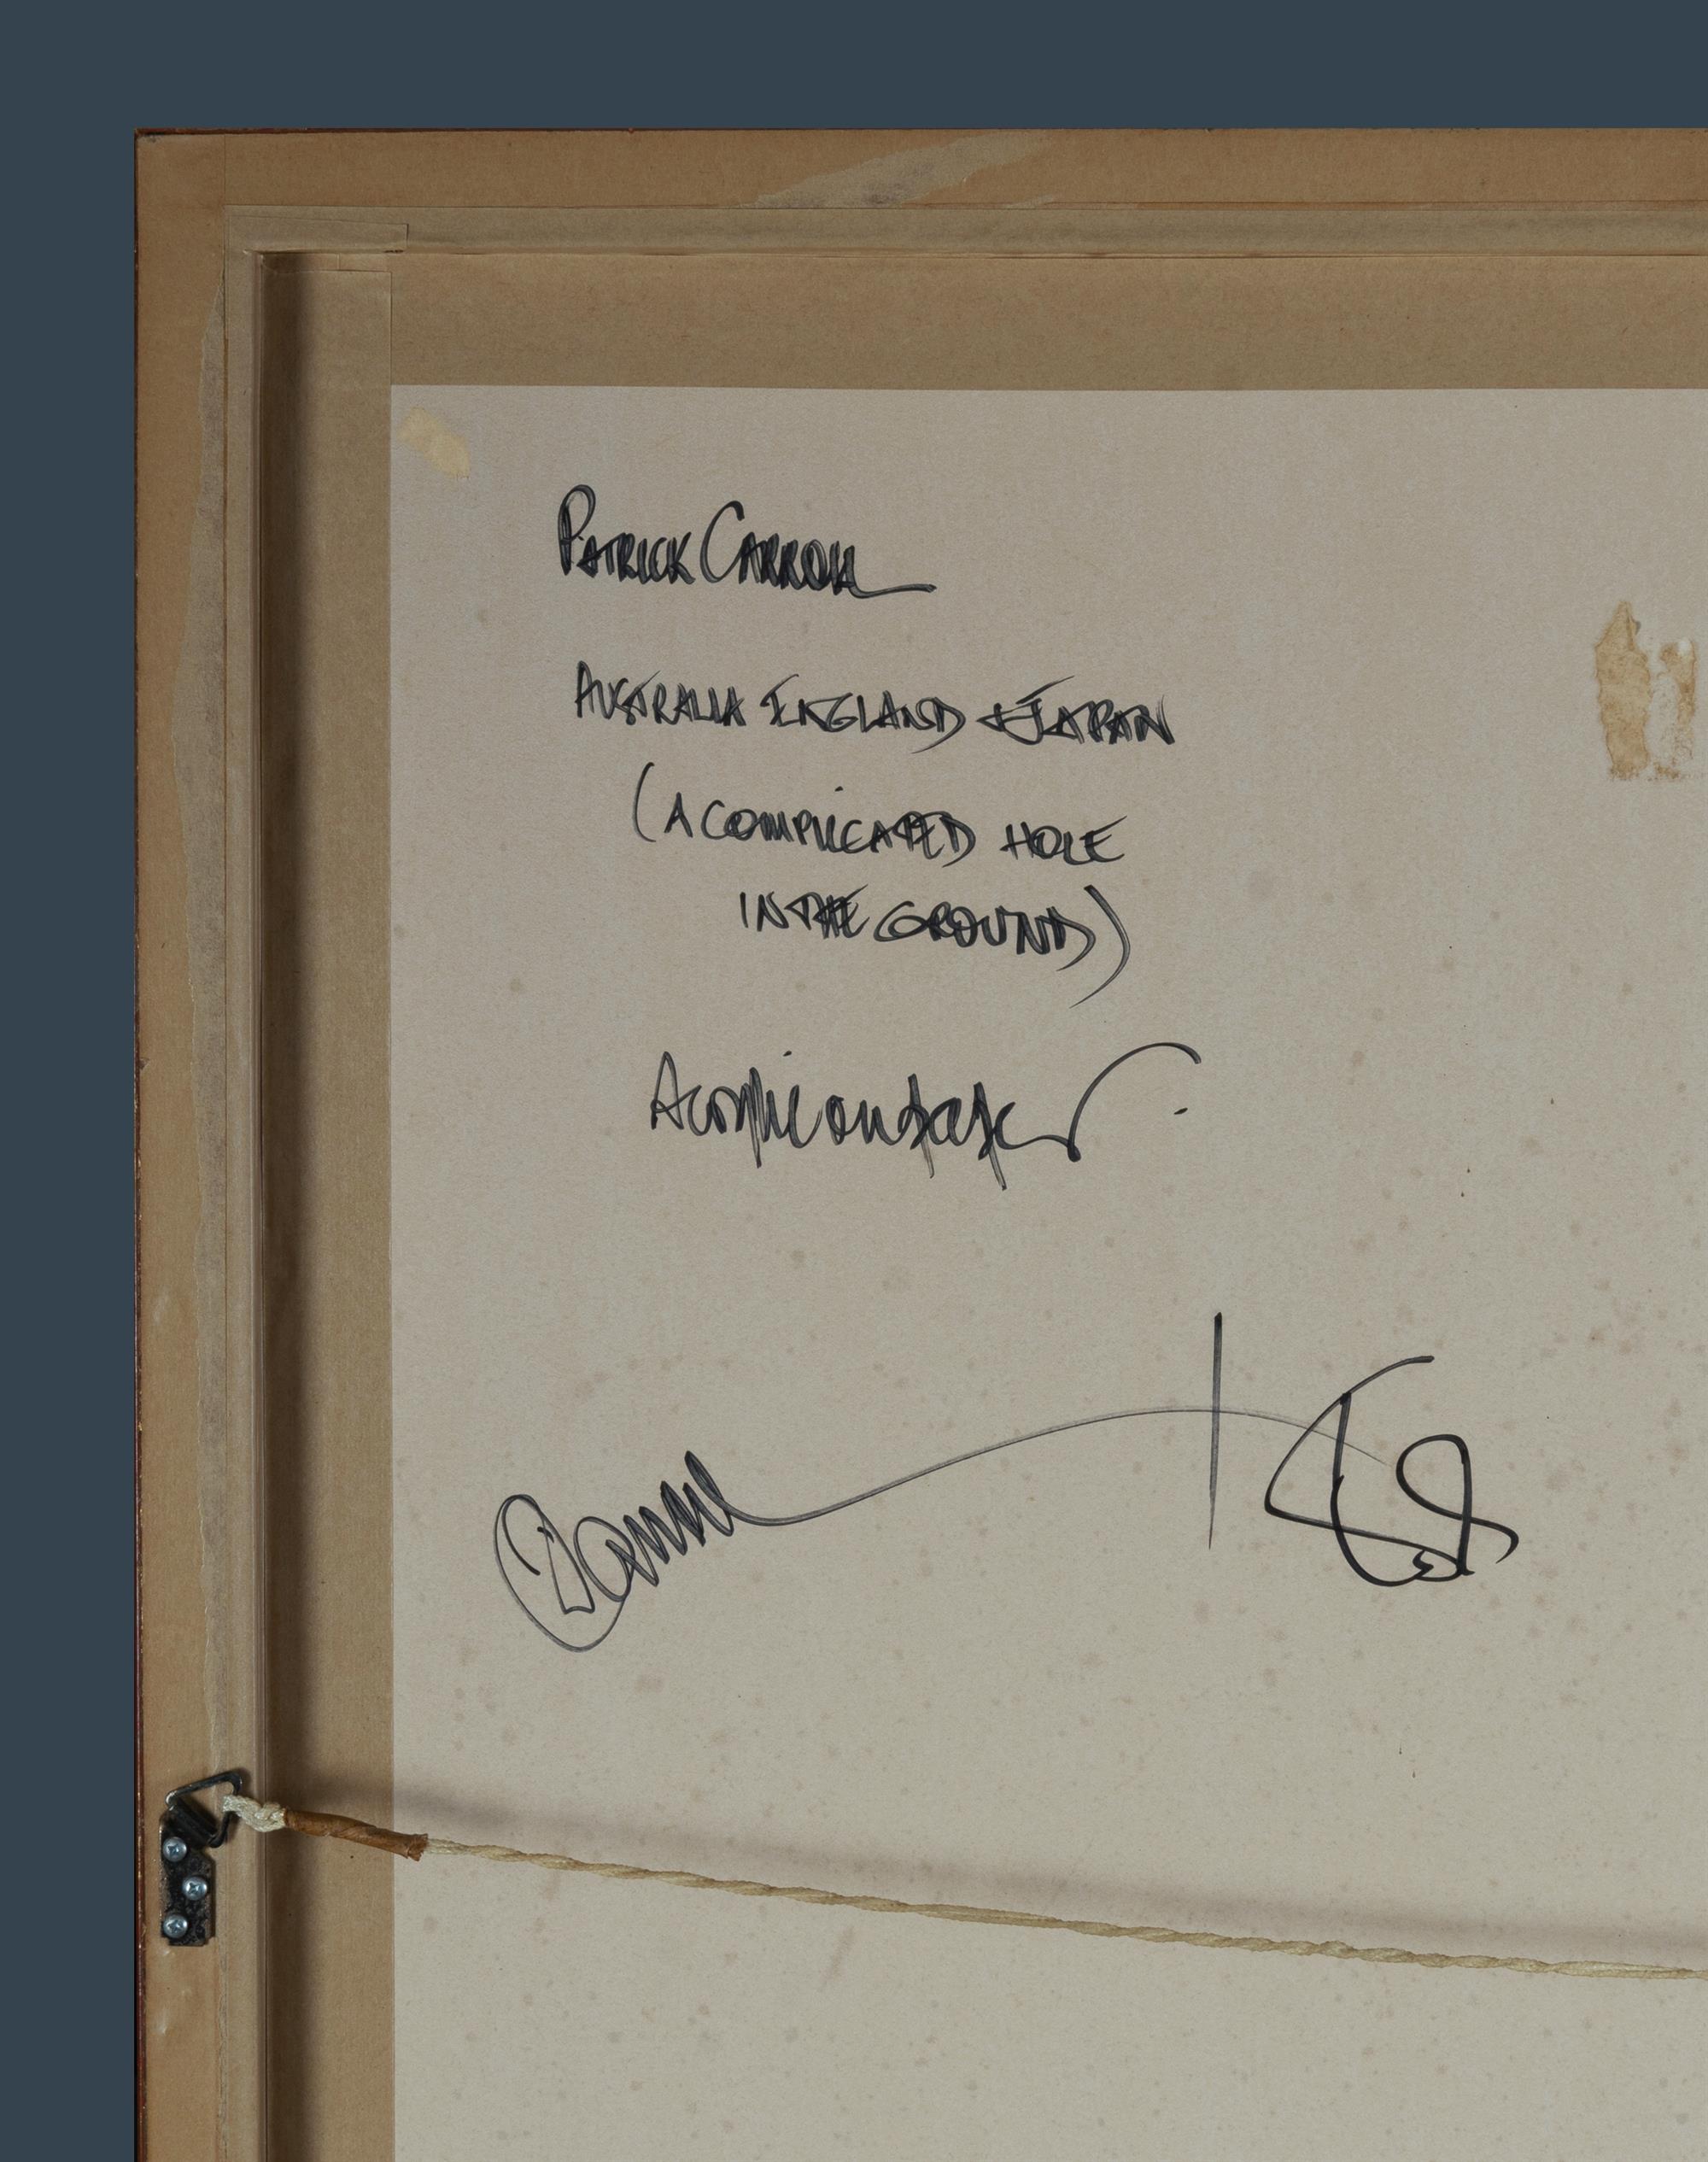 PATRICK CARROLL
AUSTRALIA ENGLAND & JAPAN
(A COMPLICATED HOLE
IN THE GROUND)
Acrylic on paper.